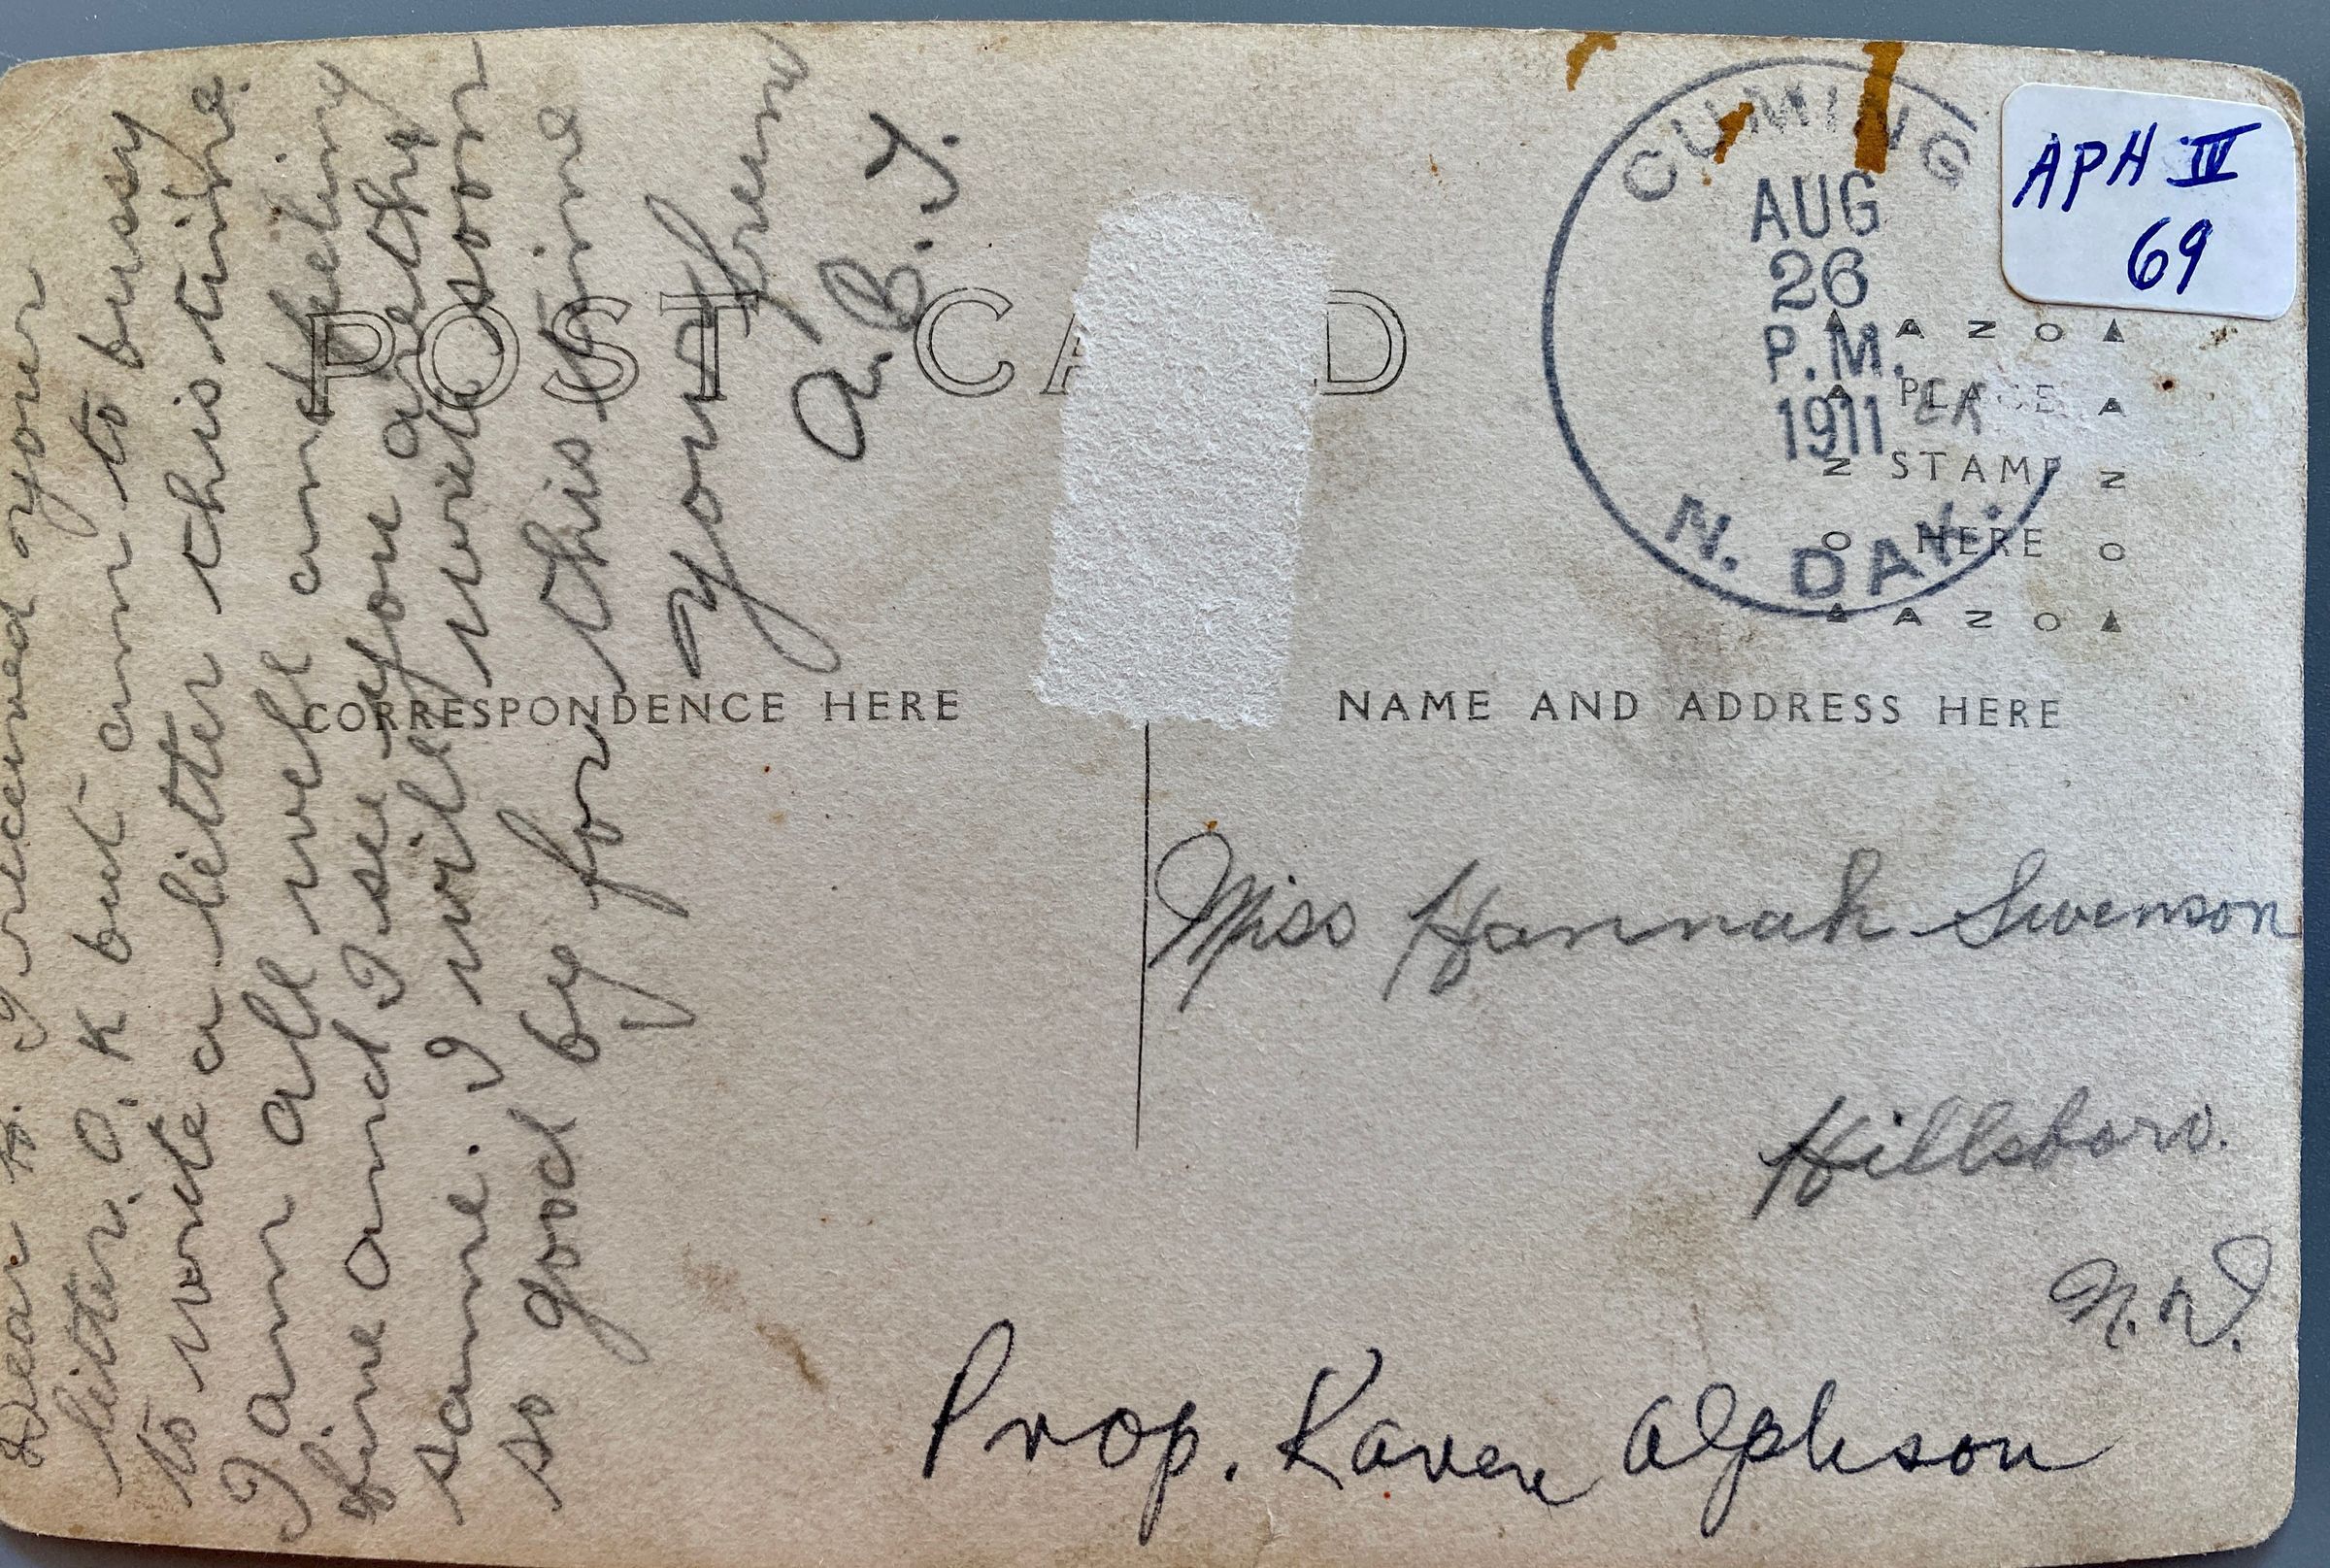 Dear H. I received your
letter. O. K but am to bussy
to write a letter this time.
I am all well and feeling
fine and I see you are the
same. I will write soon
so good by for this time
your frend
a. B. J.
POST CA D
CORRESPONDENCE HERE
CUMING
AUG
26
P.M.
1911
N. DAK.
APH III
69
AZO
PLACE
STAMP
HERE
AZO
NAME AND ADDRESS HERE
Miss Hannah Swenson
Hillsboro.
N. D.
Prop. Karen Alphson